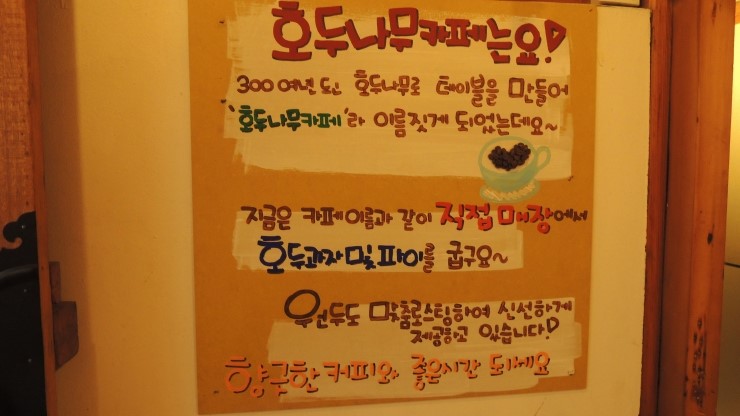 호두나무카페는요!
300여년 도는 호두나무로 테이블을 만들어
'호두나무카페'라 이름짓게 되었는데요~
지금은 카페이름과 같이 직접 매장에서
호두과자 및 파이를 굽구요~
우원두도 맞춤로스팅하여 신선하게
제공하고 있습니다!
향긋한 커피와 좋은시간 되세요